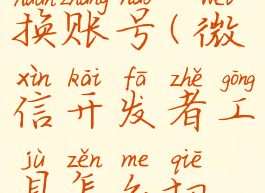 huàn zhàng hào wēi
换账号(微
xìn kāi fā zhě gōng
信开发者工
jù zěn me qiē
具怎么切